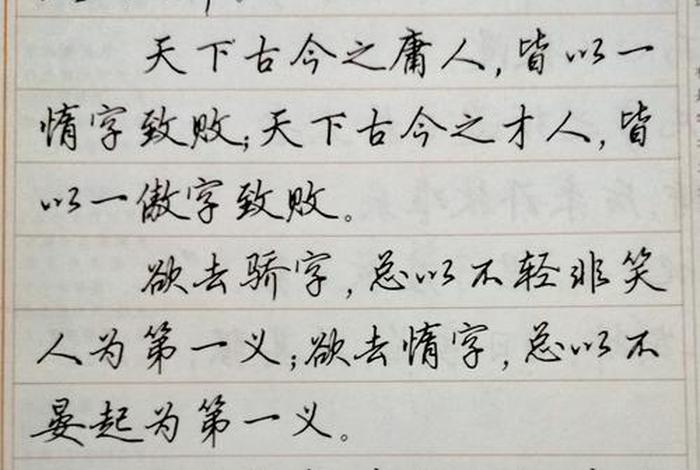 天下古今之庸人,皆以一
惰字致败;天下古今之才人,皆
以一傲字致败。
欲去骄字,总以不轻非笑
人为第一义;欲去惰字,总以不
晏起为第一义。